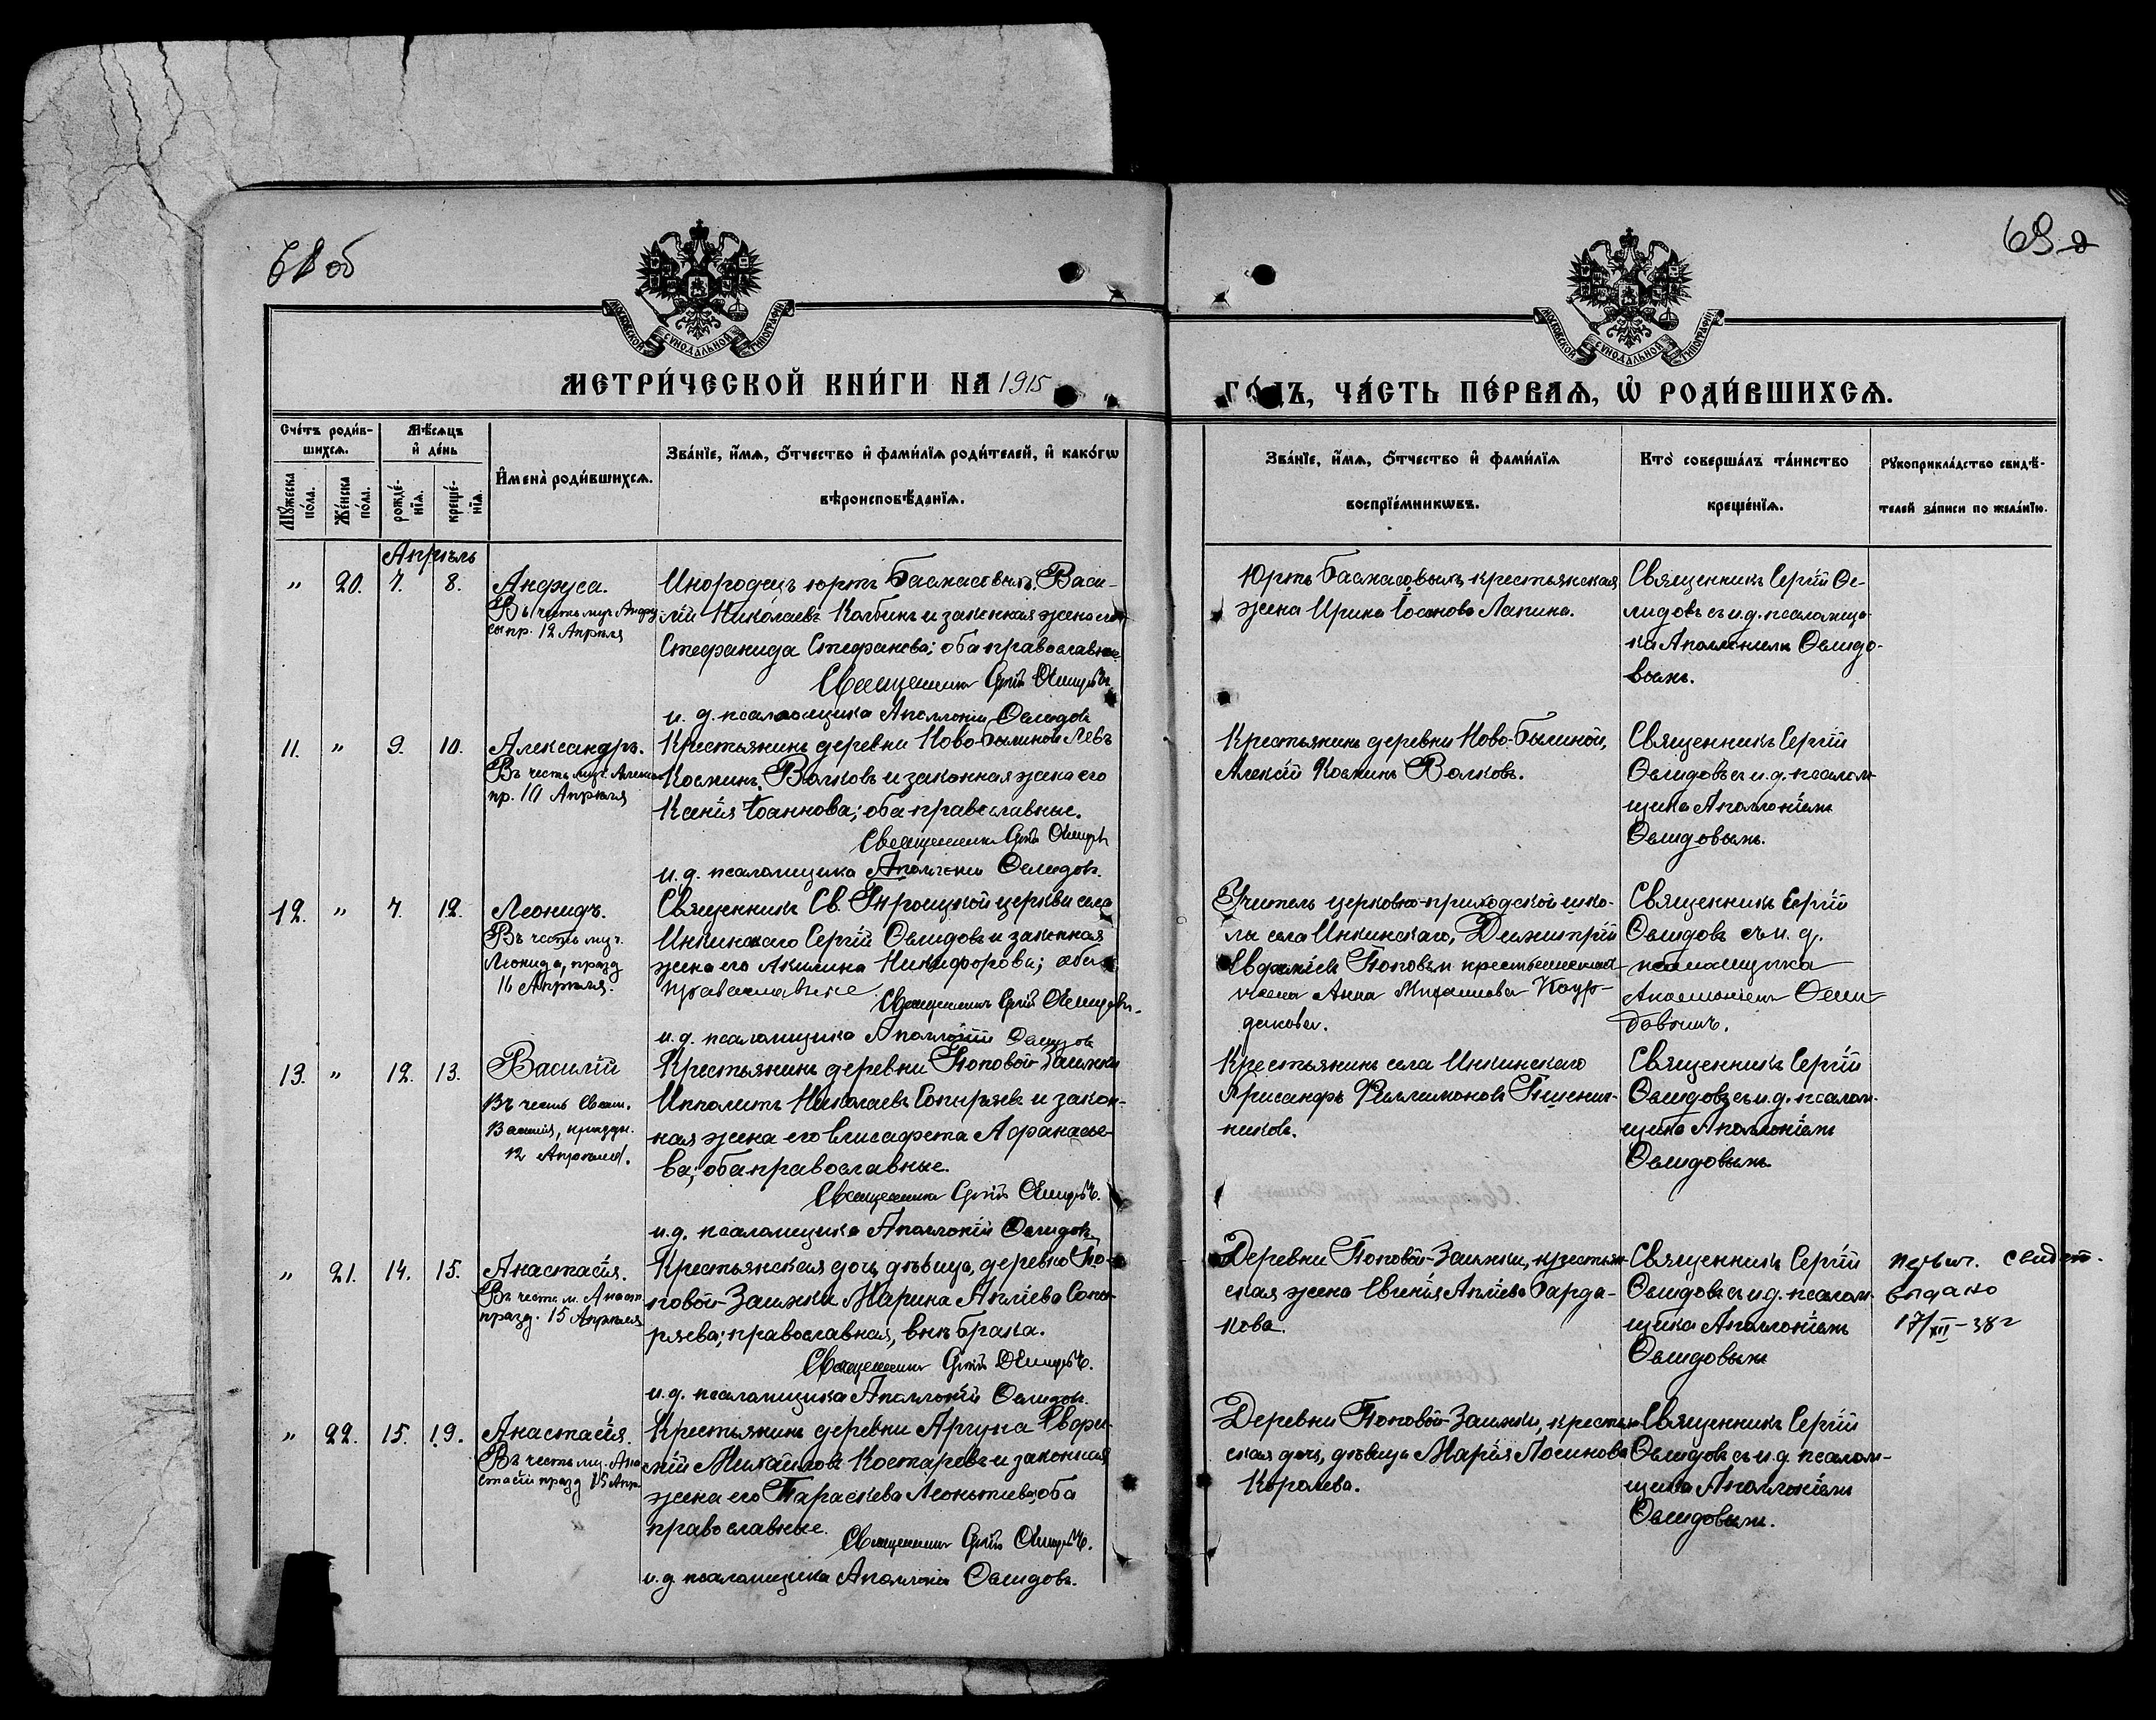 68 об
69
МОСКОВСКОЙ СѴНОДАЛЬНОЙ ТИПОГРАФІИ
МОСКОВСКОЙ СѴНОДАЛЬНОЙ ТИПОГРАФІИ
МЕТРИ́ЧЕСКОЙ КНИ́ГИ НА 1915
ГО́ДЪ, ЧА́СТЬ ПЕ́РВАѦ, Ѡ҆ РОДИ́ВШИХСѦ.
Сче́тъ роди́в-
шихсѧ.
Мѹ́жеска по́ла.
Же́нска по́ла.
Мѣ́сѧцъ
и҆ де́нь
рожде́-
нїѧ.
креще́-
нїѧ.
И҆мена̀ роди́вшихсѧ.
Зва́нїе, и҆́мѧ, ѻ҆́тчество и҆ фами́лїѧ роди́телей, и҆ како́гѡ
вѣроисповѣ́данїѧ.
Зва́нїе, и҆́мѧ, ѻ҆́тчество и҆ фами́лїѧ
воспрїе́мникѡвъ.
Кто̀ соверша́лъ та́инство
креще́нїѧ.
Рꙋкоприкла́дство свидѣ́-
телей за́писи по жела́нїю.
Апрѣль
" 20. 7. 8. Анфуса.
Въ честь муч. Анфу
сы пр. 12 Апрѣля
Инородецъ юртъ Басмасовыхъ Васи-
лій Николаевъ Колбинъ и законная жена его
Стефанида Стефанова; оба православные
Священникъ Сергій Ѳелидовъ
и. д. псаломщика Аполлоній Ѳелидовъ
Юртъ Басмасовыхъ крестьянская
жена Ирина Іоанова Лапина.
Священникъ Сергій Ѳе-
лидовъ съ и. д. псаломщи-
ка Аполлоніемъ Ѳелидо-
вымъ.
11. " 9. 10. Александръ.
Въ честь муч. Алекса
пр. 10 Апрѣля
Крестьянинъ деревни Ново-Былиной Левъ
Косминъ Волковъ и законная жена его
Ксенія Іоаннова; оба православные.
Священникъ Сергій Ѳелидовъ
и. д. псаломщика Аполлоній Ѳелидовъ.
Крестьянинъ деревни Ново-Былиной,
Алексій Косминъ Волковъ.
Священникъ Сергій
Ѳелидовъ съ и. д. псалом-
щика Аполлоніемъ
Ѳелидовымъ.
12. " 7. 12. Леонидъ.
Въ честь муч.
Леонида, празд
16 Апрѣля.
Священникъ Св. Троицкой церкви села
Инкинскаго Сергій Ѳелидовъ и законная
жена его Акилина Никифорова; оба
православные
Священникъ Сергій Ѳелидовъ.
и. д. псаломщика Аполлоній Ѳелидовъ
Учитель церковно-приходской шко-
лы села Инкинскаго, Димитрій
Евфиміевъ Поповъ и крестьянская
жена Анна Михаилова
Священникъ Сергій
Ѳелидовъ съ и. д.
псаломщика
Аполлоніемъ Ѳели-
довымъ.
13. " 12. 13. Василій
Въ честь Свят.
Василія, праздн.
12 Апрѣля.
Крестьянинъ деревни Поповой-Заимки
Ипполитъ Николаевъ Сопыряевъ и закон-
ная жена его Елисафета Афанасье-
ва; оба православные.
Священникъ Сергій Ѳелидовъ.
и. д. псаломщика Аполлоній Ѳелидовъ
Крестьянинъ села Инкинскаго
Хрисанфъ Филлимоновъ Пшенич-
никовъ.
Священникъ Сергій
Ѳелидовъ съ и. д. псалом-
щика Аполлоніемъ
Ѳелидовымъ
" 21. 14. 15. Анастасія.
Въ честь м. Анаст.
празд. 15 Апрѣля
Крестьянская дочь дѣвица, деревни По-
повой-Заимки Марина Аплієва Сопы-
ряева; православная, внѣ брака.
Священникъ Сергій Ѳелидовъ.
и. д. псаломщика Аполлоній Ѳелидовъ.
Деревни Поповой-Заимки, крестьян-
ская жена Евгенія Аплієва Барда-
кова.
Священникъ Сергій
Ѳелидовъ съ и. д. псалом-
щика Аполлоніемъ
Ѳелидовымъ
первич. свидет.
выдано
17/XII-38 г
" 22. 15. 19. Анастасія.
Въ честь му. Ана
стасіи празд 15 Апр.
Крестьянинъ деревни Аргуна Евфи-
мій Михаиловъ Костаревъ и законная
жена его Параскева Леонтьева, оба
православные.
Священникъ Сергій Ѳелидовъ.
и. д. псаломщика Аполлоній Ѳелидовъ.
Деревни Поповой-Заимки, крестьян
ская дочь, дѣвица Марія Логинова
Королева.
Священникъ Сергій
Ѳелидовъ съ и. д. псалом-
щика Аполлоніемъ
Ѳелидовымъ.